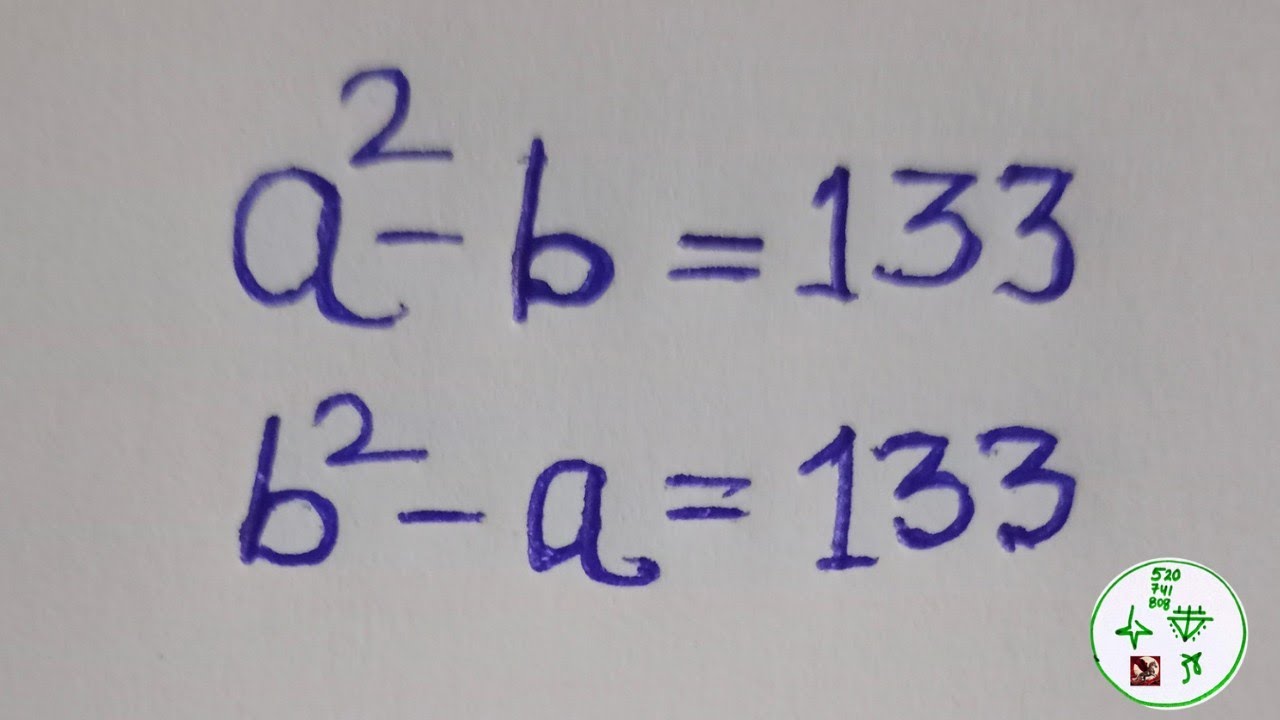 a² - b = 133
b² - a = 133
520
741
808